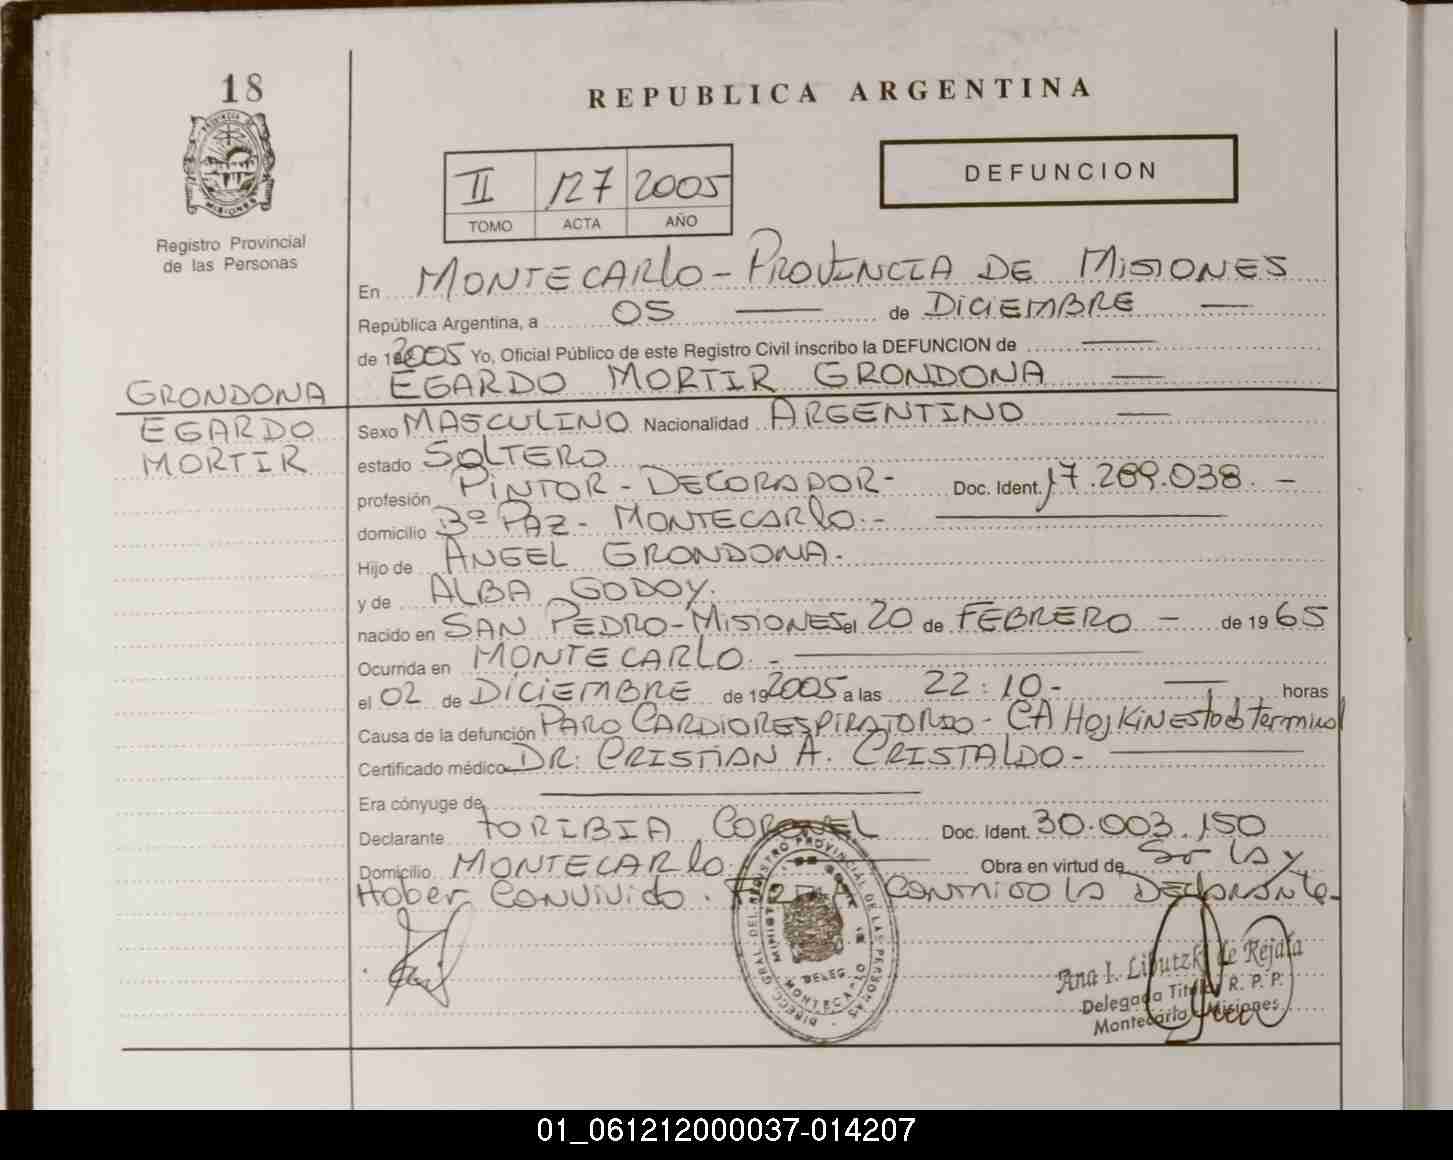 18
REPUBLICA ARGENTINA
PROVINCIA DE
MISIONES
Registro Provincial
de las Personas
II 127 2005
TOMO ACTA AÑO
DEFUNCION
En MONTECARLO - PROVINCIA DE MISIONES
República Argentina, a 05 de DICIEMBRE
de 2005 Yo, Oficial Público de este Registro Civil inscribo la DEFUNCION de
GRONDONA
EGARDO
MORTIR
EGARDO MORTIR GRONDONA
Sexo MASCULINO Nacionalidad ARGENTINO
estado SOLTERO
profesión PINTOR - DECORADOR - Doc. Ident. 17.289.038. -
domicilio Bº PAZ - MONTECARLO. -
Hijo de ANGEL GRONDONA.
y de ALBA GODOY.
nacido en SAN PEDRO - MISIONES el 20 de FEBRERO - de 19 65
Ocurrida en MONTECARLO. -
el 02 de DICIEMBRE de 19 2005 a las 22:10 - horas
Causa de la defunción PARO CARDIORESPIRATORIO - CA
Certificado médico DR: CRISTIAN A. CRISTALDO -
Era cónyuge de
Declarante TORIBIA CORONEL Doc. Ident. 30.003.150
Domicilio MONTECARLO. Obra en virtud de
Haber Convivido. CONMIGO LA DECLARANTE. -
DIRECC. GRAL. DEL REGISTRO PROVINCIAL DE LAS PERSONAS
DELEG.
MONTECARLO
Ana I. Libutzki de Rejala
Delegada Titular R. P. P.
Montecarlo Misiones
01_061212000037-014207